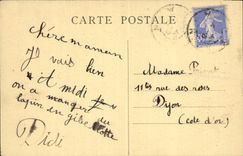 CARTE POSTALE
Chère maman
Je vais bien
A midi
on a mangé du
lapin en gibelotte
Didi
Madame
11 bis rue des roses
Dijon
(Côte d'or)